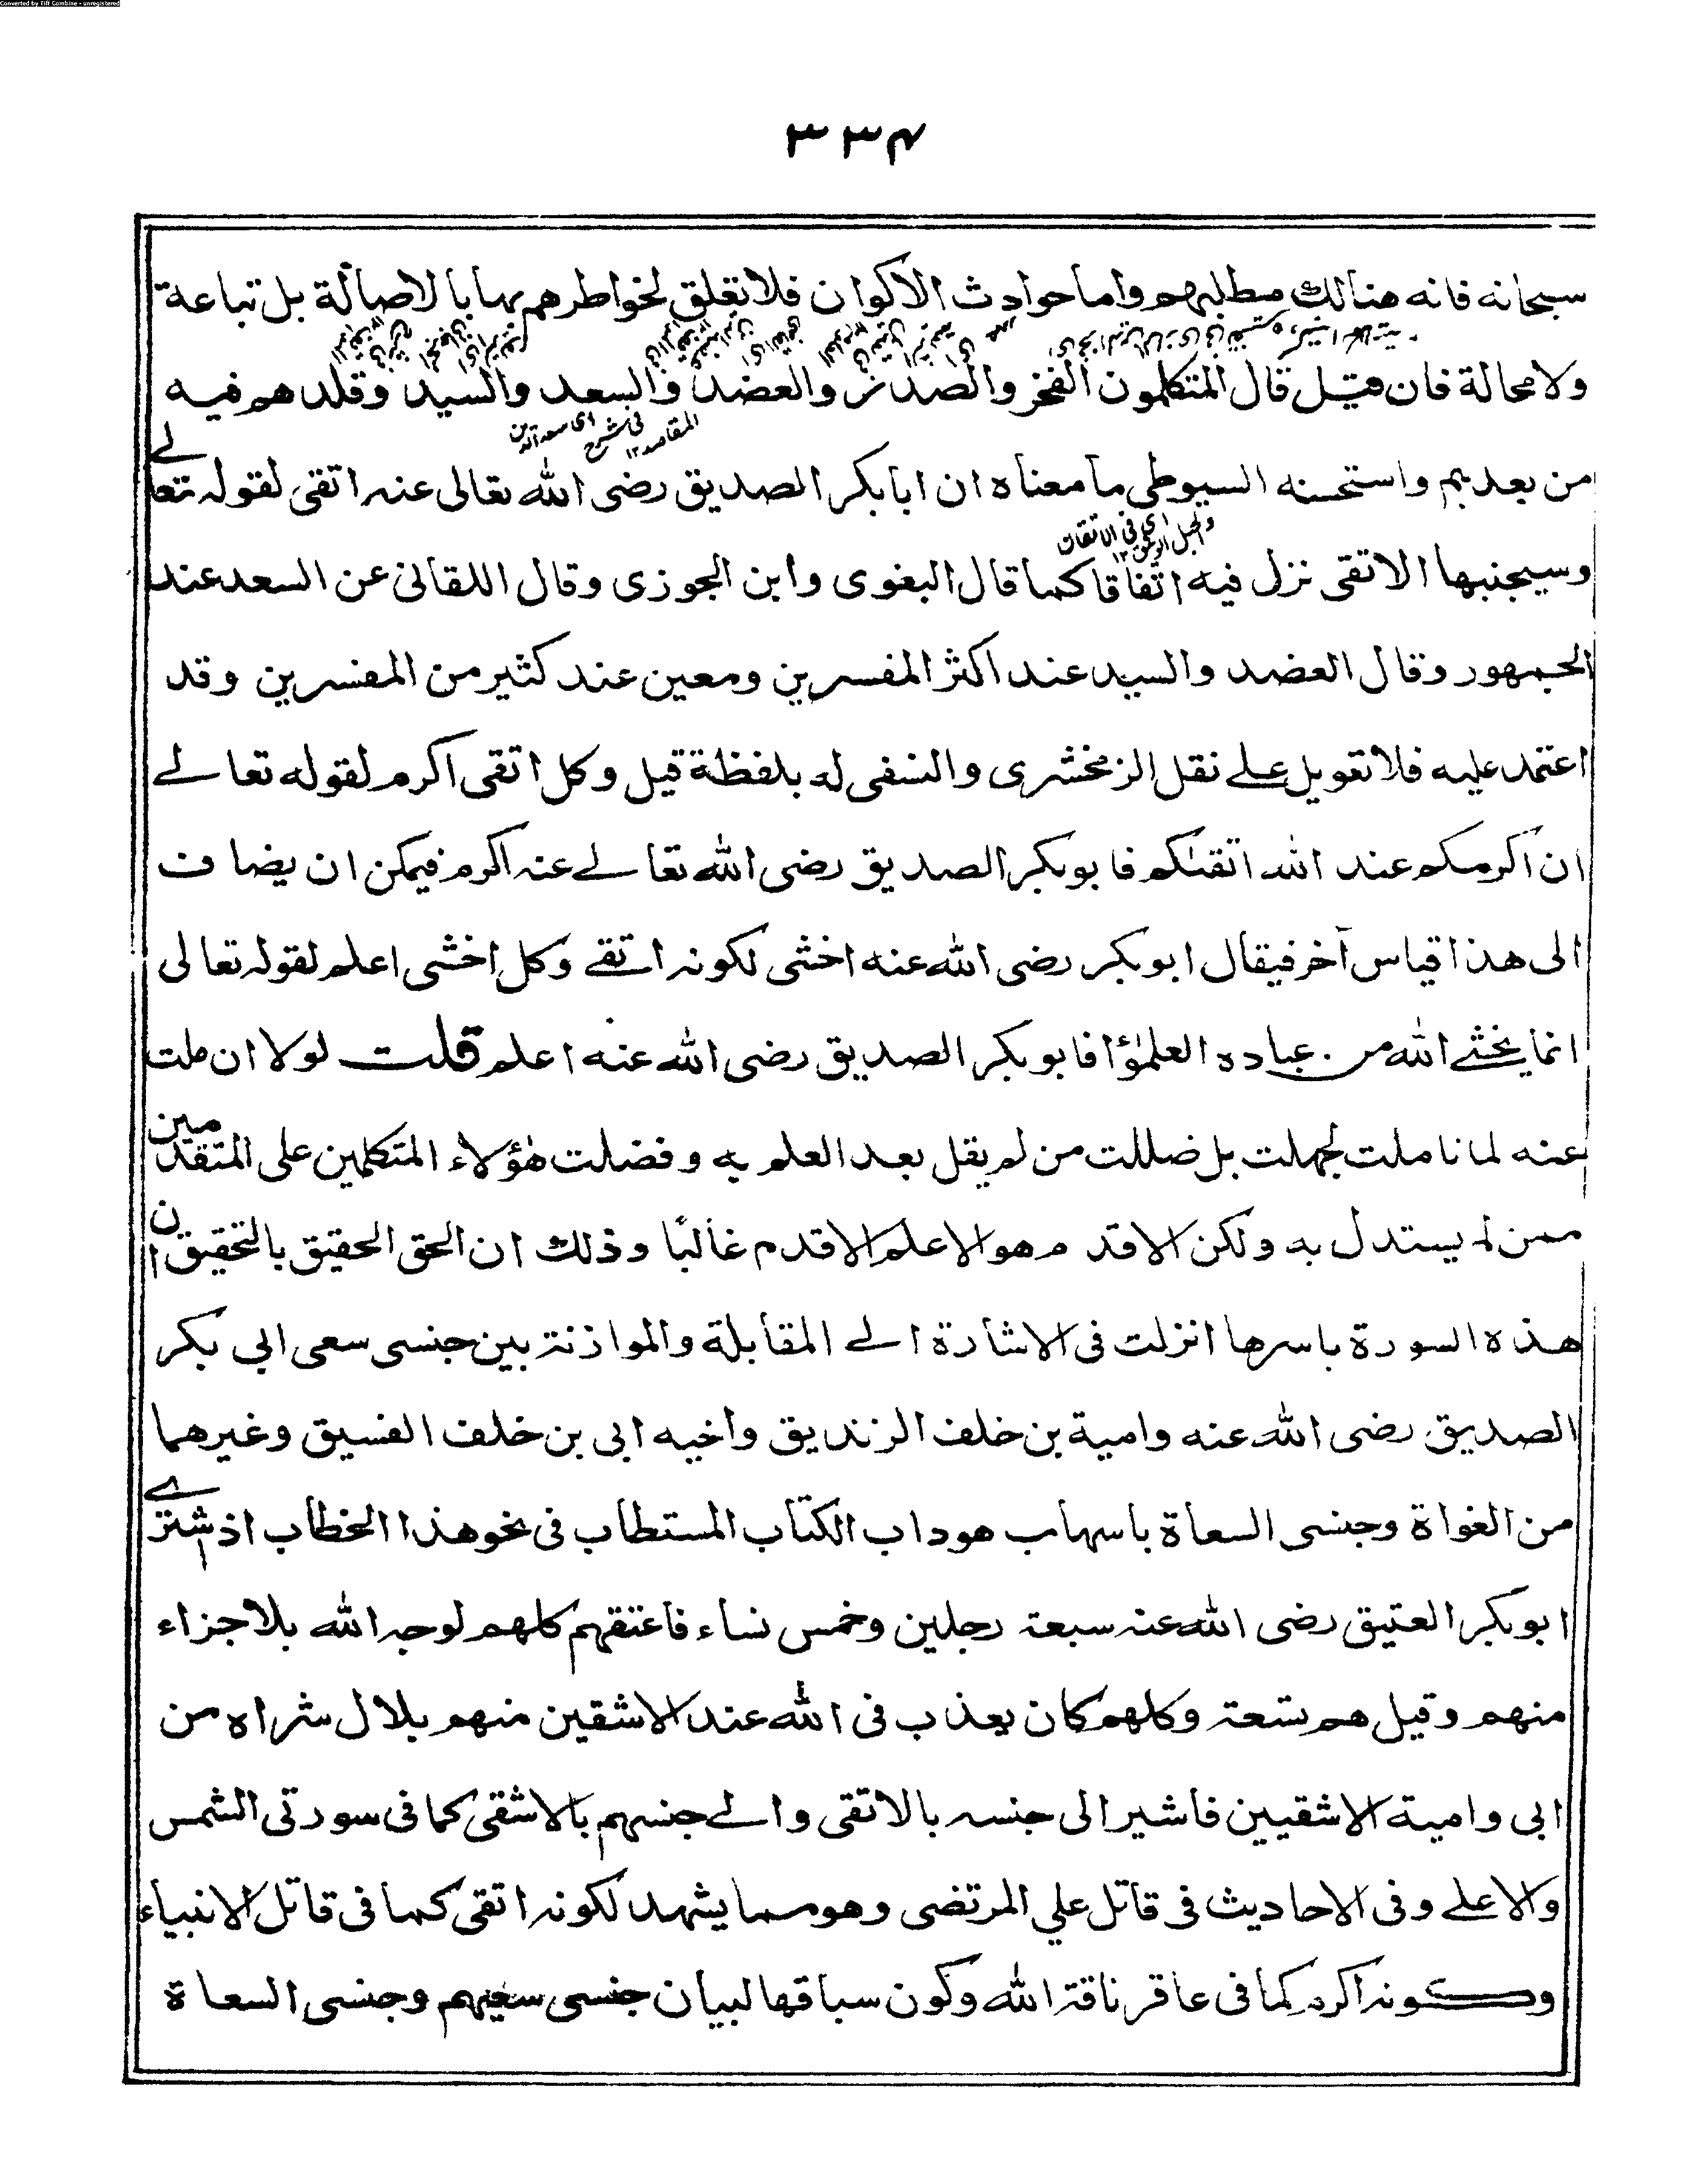 Converted by Tiff Combine - unregistered
٣٣٤
سبحانه فانه هنالك مطلبهم واما حوادث الاكوان فلا تعلق لخواطرهم بها بالاصالة بل تباعة
ولا محالة فان قيل قال المتكلمون الفخر والصدر والعضد والسعد والسيد وقلدهم فيه
اى سعد الدين فى شرح المقاصد ١٢
من بعدهم واستحسنه السيوطى ما معناه ان ابابكر الصديق رضى الله تعالى عنه اتقى لقوله تعالے
اى فى الاتقان والحبل الوثيق ١٢
وسيجنبها الاتقى نزل فيه اتفاقا كما قال البغوى وابن الجوزى وقال اللقانى عن السعد عند
الجمهور وقال العضد والسيد عند اكثر المفسرين ومعين عند كثير من المفسرين وقد
اعتمد عليه فلا تعويل علے نقل الزمخشرى والنسفى له بلفظة قيل وكل اتقى اكرم لقوله تعالے
ان اكرمكم عند الله اتقىٰكم فابوبكر الصديق رضى الله تعالے عنه اكرم فيمكن ان يضاف
الى هذا قياس آخر فيقال ابوبكر رضى الله عنه اخشى لكونه اتقے وكل اخشى اعلم لقوله تعالى
انما يخشے الله من عباده العلمٰؤا فابوبكر الصديق رضى الله عنه اعلم قلت لولا ان ملت
عنه لما ناملت لجهلت بل ضللت من لم يقل بعد العلم به وفضلت هٰؤلاء المتكلمين على المتقدمين
ممن لم يستدل به ولكن الاقدم هو الاعلم الاقدم غالبًا وذلك ان الحق الحقيق بالتحقيق ان
هذه السورة باسرها انزلت فى الاشارة الے المقابلة والموازنة بين جنسى سعى ابي بكر
الصديق رضى الله عنه وامية بن خلف الزنديق واخيه ابى بن خلف الفسيق وغيرهما
من الغواة وجنسى السعاة باسهاب هوداب الكتاب المستطاب فى نحو هذا الخطاب اذ شترے
ابوبكر العتيق رضى الله عنه سبعة رجلين وخمس نساء فاعتقهم كلهم لوجه الله بلا جزاء
منهم وقيل هم تسعة وكلهم كان يعذب فى الله عند الاشقين منهم بلال شراه من
ابى وامية الاشقيين فاشير الى جنسه بالاتقى والے جنسهم بالاشقى كما فى سورتى الشمس
والاعلے وفى الاحاديث فى قاتل علي المرتضى وهو مما يشهد لكونه اتقى كما فى قاتل الانبياء
وكونه اكرم كما فى عاقر ناقة الله وكون سباقها لبيان جنسى سعيهم وجنسى السعاة